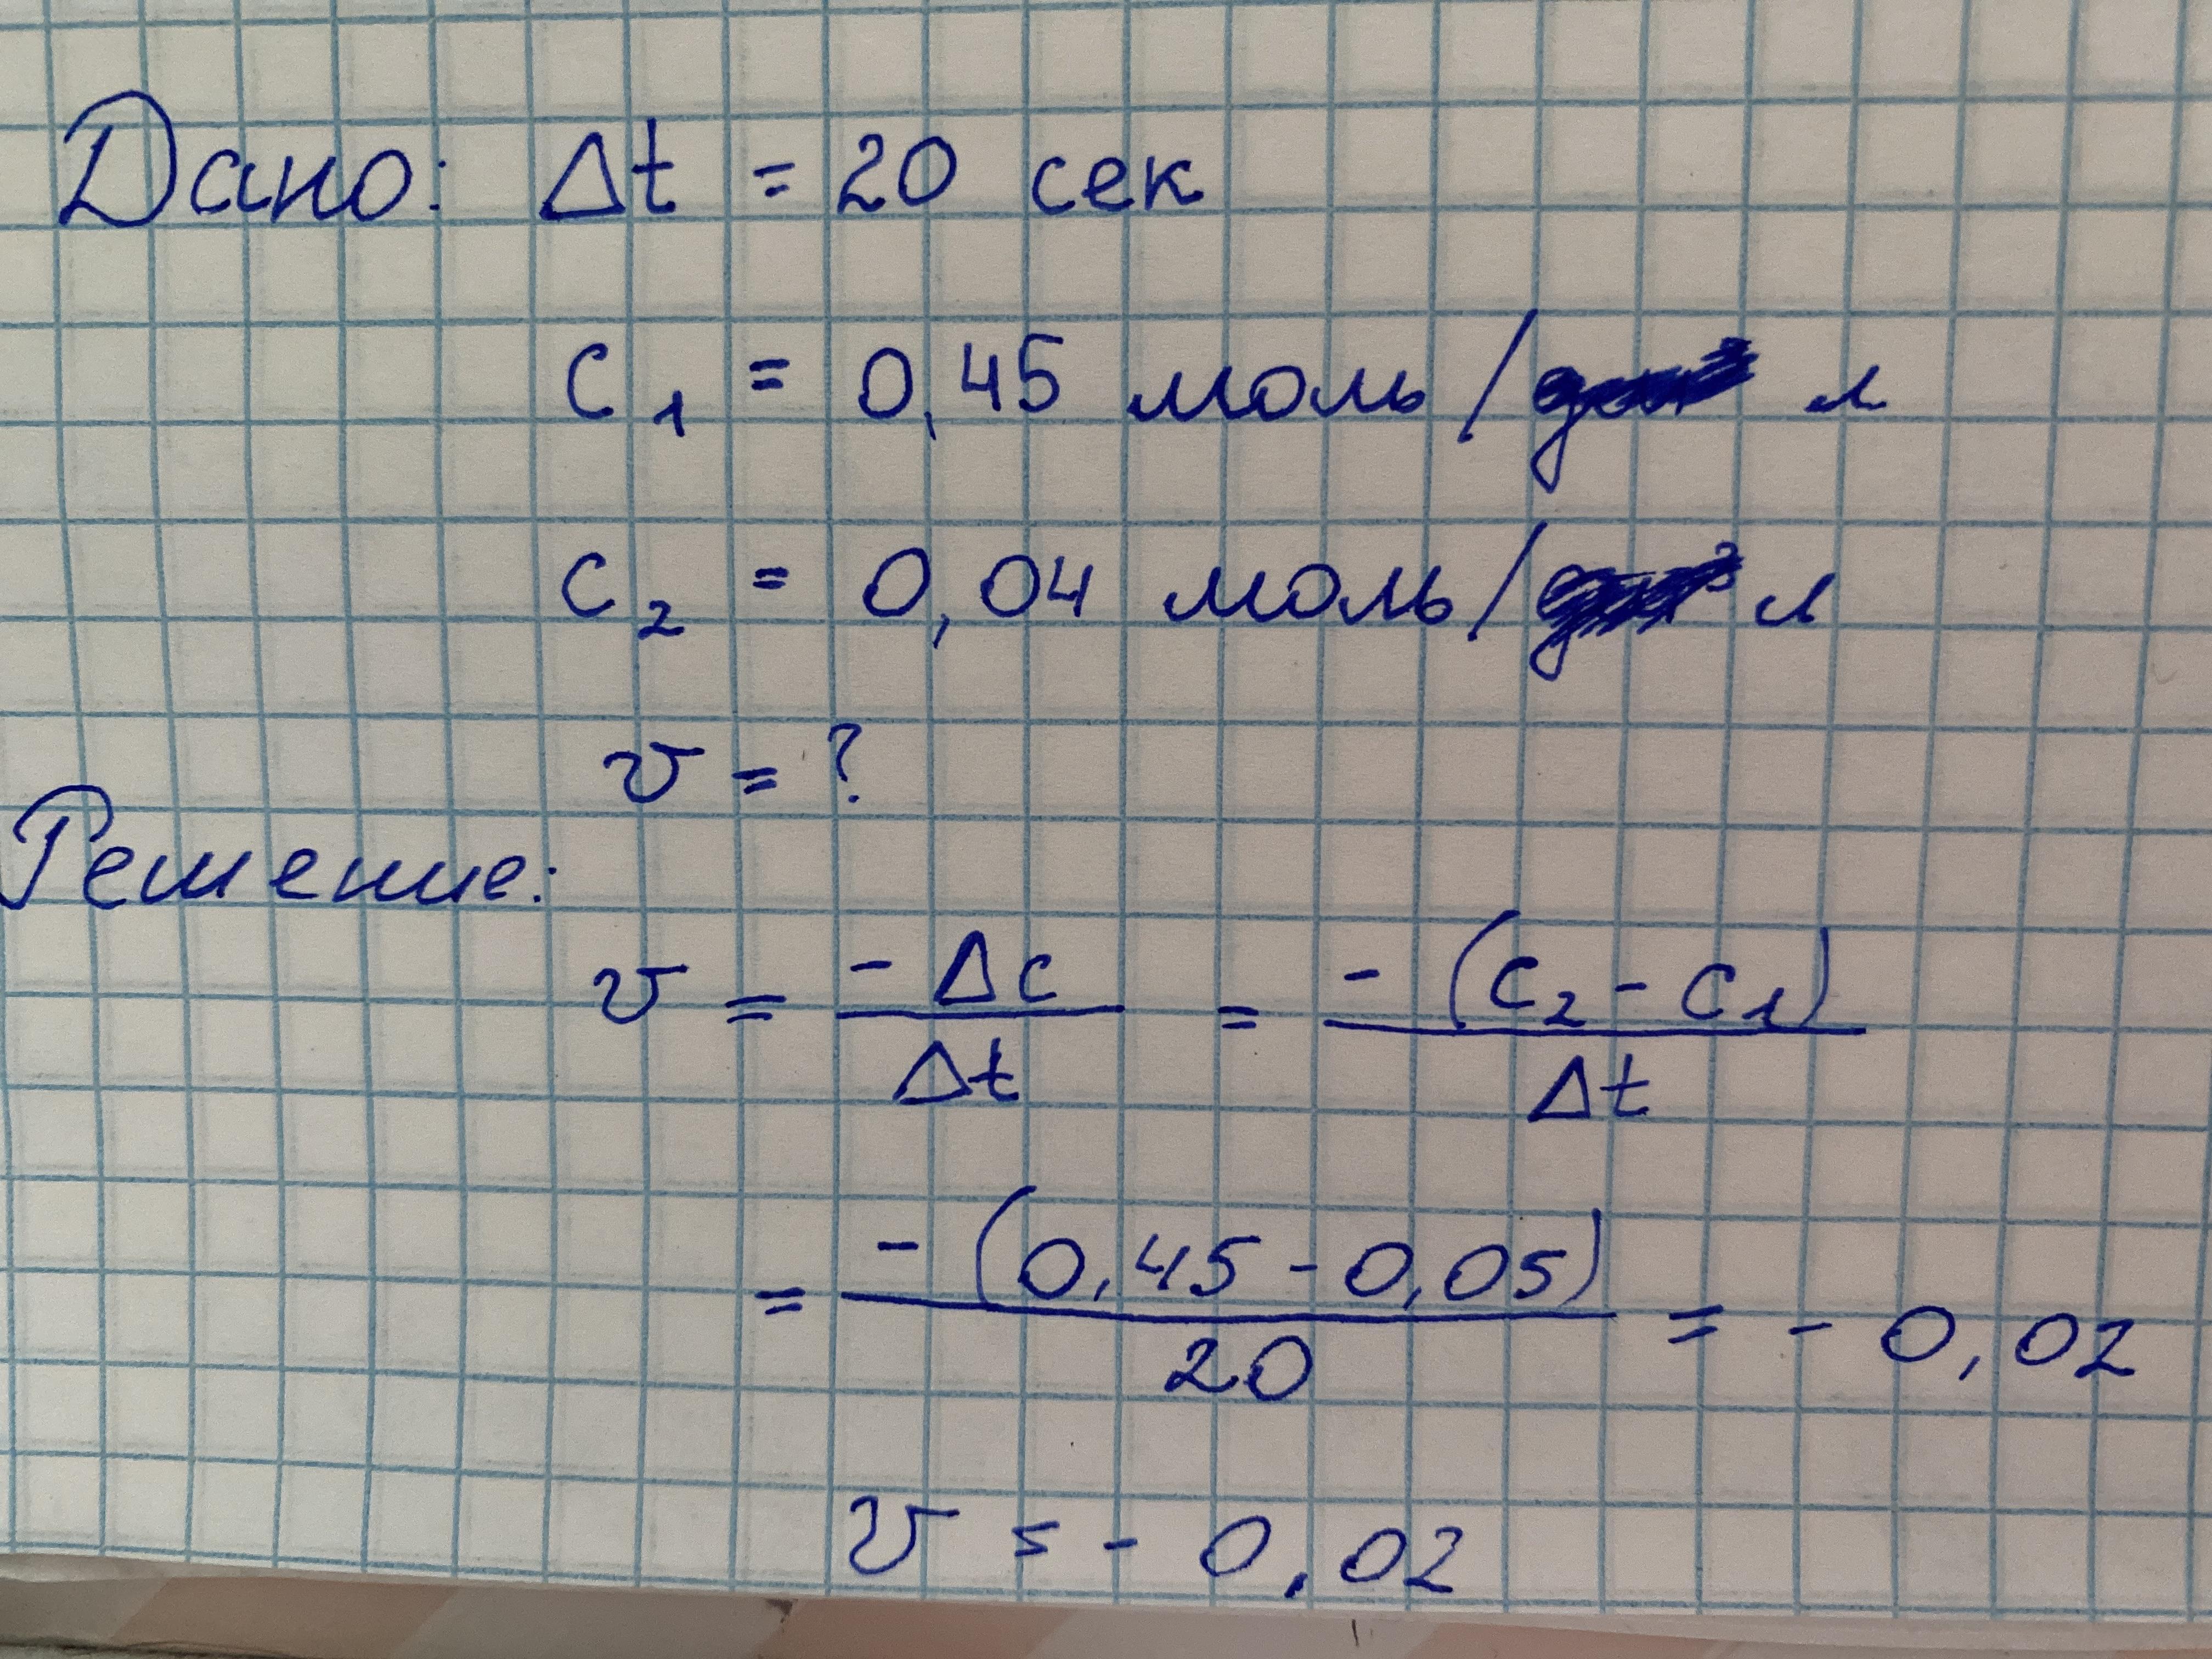 Дано: Δt = 20 сек
c₁ = 0,45 моль/ л
c₂ = 0,04 моль/ л
v = ?
Решение:
v = -Δc/Δt = -(c₂ - c₁)/Δt
= -(0,45 - 0,05)/20 = - 0,02
v = - 0,02